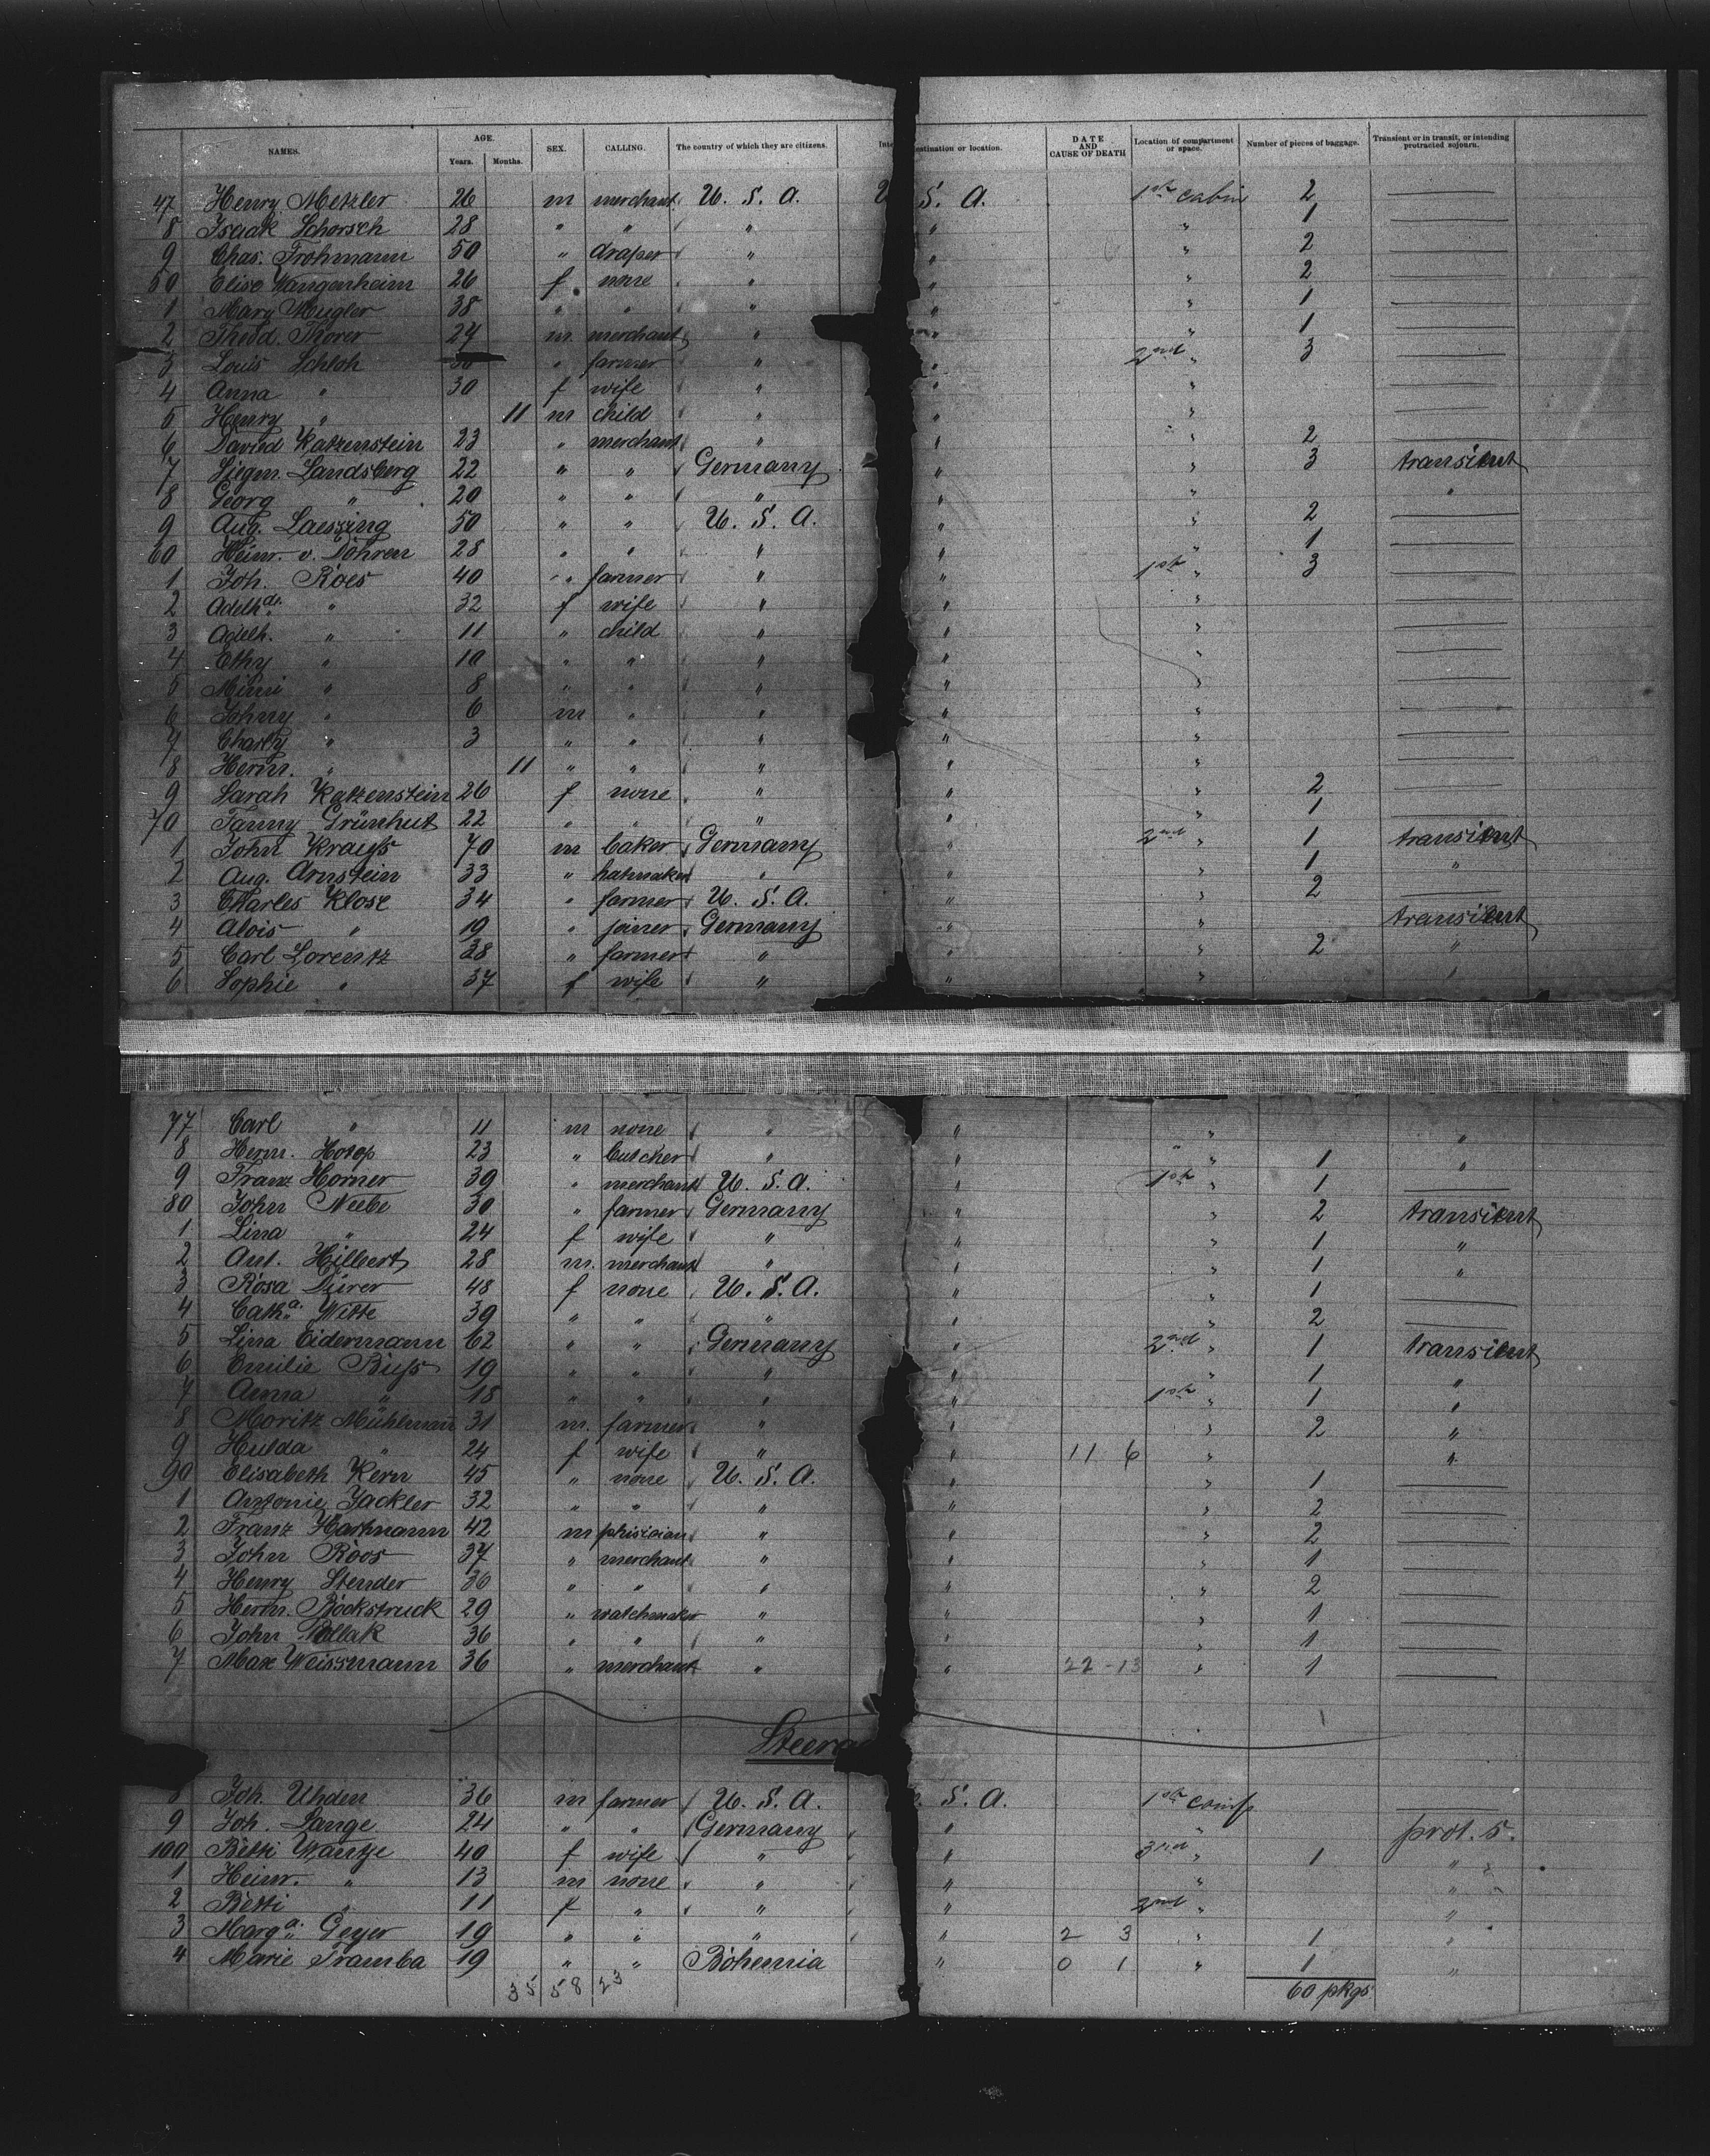 NAMES. AGE. Years. Months. SEX. CALLING. The country of which they are citizens. Inte estination or location. DATE AND CAUSE OF DEATH Location of compartment or space. Number of pieces of baggage. Transient or in transit, or intending protracted sojourn.
47 Henry Metzler 26 m merchant U. S. A. U S. A. 1st cabin 2 —
8 Isaak Schorsch 28 " " " " " 1 —
9 Chas. Frohmann 50 " draper " " " 2 —
50 Elise Wangenheim 26 f. none " " " 2 —
1 Mary Mugler 38 " " " " " 1 —
2 Theod. Thorer 27 m. merchant " " " 1 —
3 Louis Schloh 36 " farmer " " 2nd " 3 —
4 Anna " 30 f wife " " " —
5 Henry " 11 m child " " " —
6 David Katzenstein 23 " merchant " " " 2 —
7 Siegm. Landsberg 22 " " Germany " " 3 transient
8 Georg " 20 " " " " " "
9 Aug. Laessing 50 " " U. S. A. " " 2 —
60 Heinr. v. Döhren 28 " " " " " 1 —
1 Joh. Roes 40 " farmer " " 1st " 3 —
2 Adelhd. " 32 f wife " " " —
3 Adelh. " 11 " child " " " —
4 Ethy " 10 " " " " " —
5 Mimi " 8 " " " " " —
6 Johny " 6 m " " " " —
7 Charly " 3 " " " " " —
8 Herm. " 11 " " " " " —
9 Sarah Katzenstein 26 f none " " " 2 —
70 Fanny Grünhut 22 " " " " " 1 —
1 John Krauss 70 m baker Germany " 2nd " 1 transient
2 Aug. Arnstein 33 " hatmaker " " " 1 "
3 Charles Klose 34 " farmer U. S. A. " " 2 —
4 Alois " 19 " joiner Germany " " transient
5 Carl Lorentz 38 " farmer " " " 2 "
6 Sophie " 37 f wife " " " "
77 Carl " 11 m none " " " "
8 Herm. Hotop 23 " butcher " " " 1 "
9 Franz Horner 39 " merchant U. S. A. " 1st " 1 —
80 John Neebe 30 " farmer Germany " " 2 transient
1 Lina " 24 f wife " " " 1 "
2 Ant. Hilbert 28 m. merchant " " " 1 "
3 Rosa Dürer 48 f none U. S. A. " " 1 —
4 Catha. Witte 39 " " " " " 2 —
5 Lina Eidermann 62 " " Germany " 2nd " 1 transient
6 Emilie Buss 19 " " " " " 1 "
7 Anna " 18 " " " " 1st " 1 "
8 Moritz Mühlman 31 m. farmer " " " 2 "
9 Hulda " 24 f wife " " 11 6 " "
90 Elisabeth Kern 45 " none U. S. A. " " 1 —
1 Antonie Jackler 32 " " " " " 2 —
2 Franz Hartmann 42 m phisician " " " 2 —
3 John Roos 37 " merchant " " " 1 —
4 Henry Stender 30 " " " " " 2 —
5 Herm. Böckstruck 29 " watchmaker " " " 1 —
6 John Pollak 36 " " " " " 1 —
7 Max Weissmann 36 " merchant " " 22-13 " 1 —
Steera
8 Joh. Uhden 36 m farmer U. S. A. S. A. 1st comp —
9 Joh. Lange 24 " " Germany " " prot. S.
100 Betti Wantje 40 f wife " " 3rd " 1 "
1 Heinr. " 13 m none " " " "
2 Betti " 11 f " " " 2nd " "
3 Marga. Geyer 19 " " " " 2 3 " 1 "
4 Marie Tramba 19 " " Bohemia " 0 1 " 1 "
35 58 23 60 pkgs